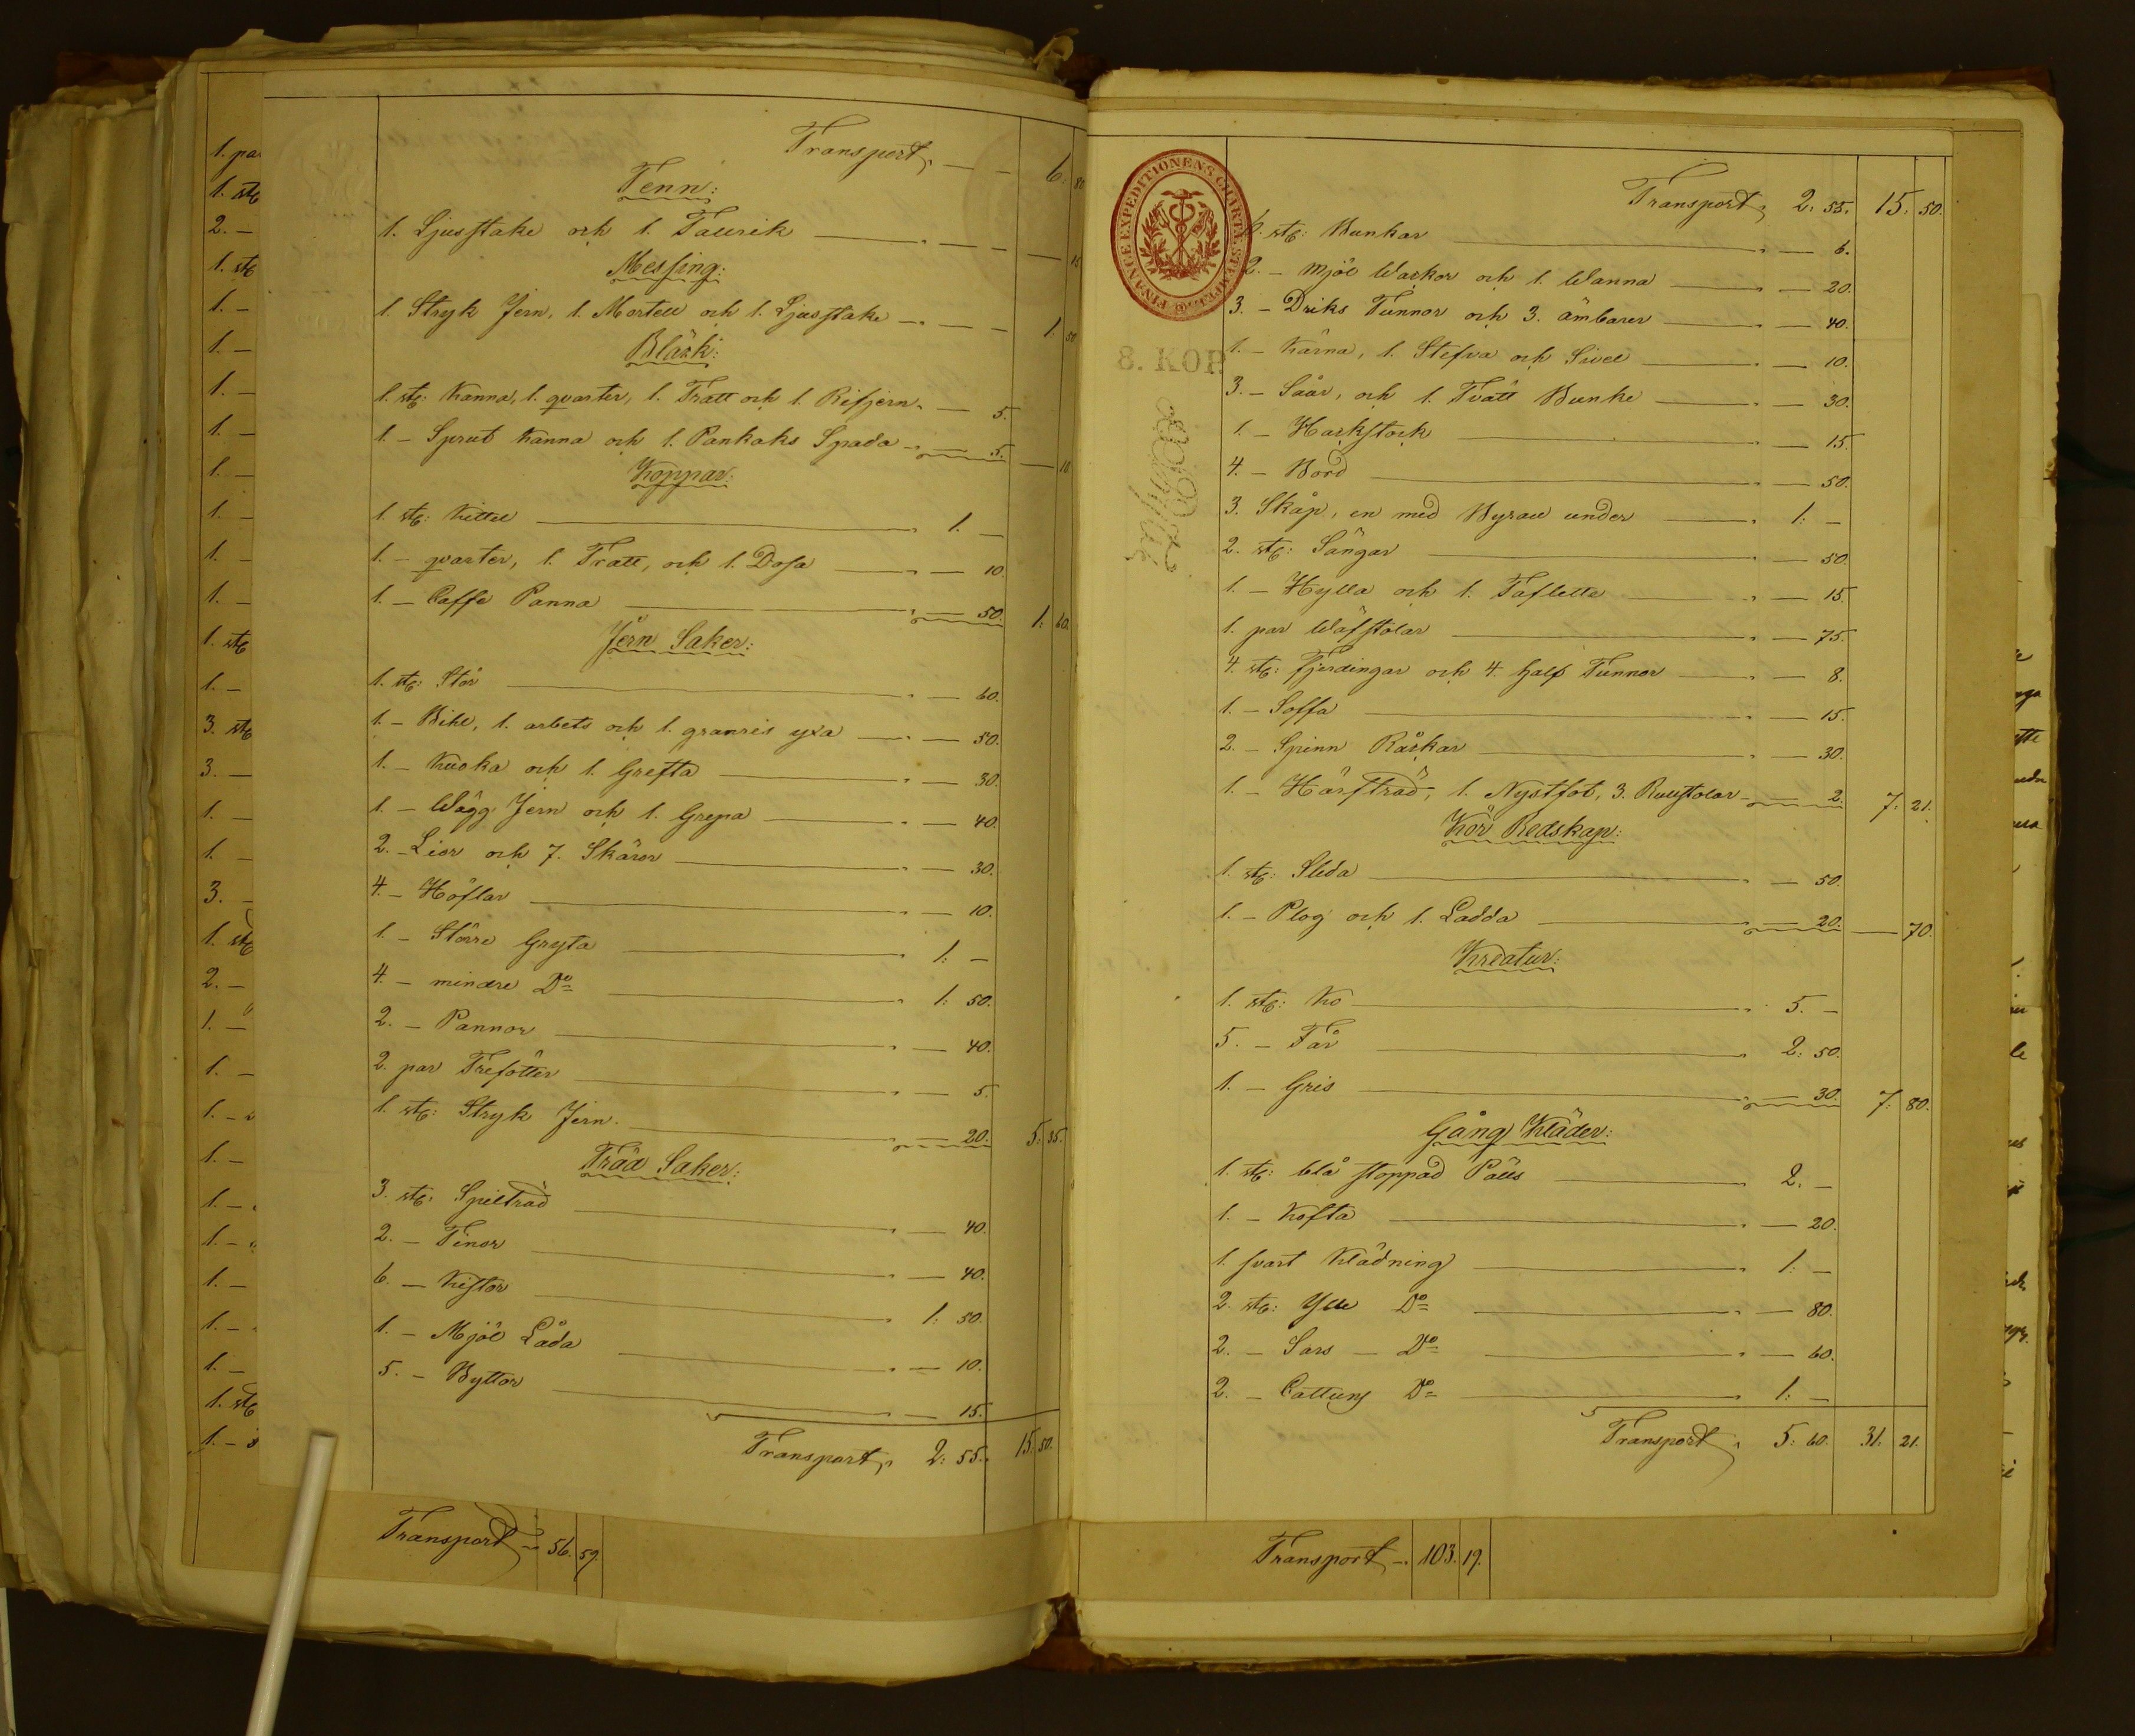 Transport, — — 6: 80
Tenn:
1. Ljusstake och 1. Tallrik — — — 15
Messing:
1. Stryk Jern, 1. Mortell och 1. Ljusstake — — — 1: 50
Bläck:
1. st: Kanna, 1. qvarter, 1. Tratt och 1. Rifjern — 5.
1. — Sprut Kanna och 1. Pankaks Spada — 5. — 10
Koppar:
1. st: Kittel — 1. —
1. — qvarter, 1. Tratt, och 1. Dosa — 10.
1. — Caffe Panna — 50. 1: 60.
Jern Saker:
1. st: Stör — 60.
1. — Bihl, 1. arbets och 1. granris yxa — 50.
1. — Kuoka och 1. Grefta — 30.
1. — Wägg Jern och 1. Grepa — 40.
2. — Lior och 7. Skäror — 30.
4. — Höflar — 10.
1. — Större Gryta — 1: —
4. — mindre Do — 1: 50.
2. — Pannor — 40.
2. par Trefötter — 5.
1. st: Stryk Jern. — 20. 5: 35.
Träd Saker:
3. st: Spilträd — 40.
2. — Tinor — 40.
6. — Kistor — 1: 50.
1. — Mjöl Låda — 10.
5. — Byttor — 15.
Transport, 2: 55. 15: 50.
Transport — 56. 59.
1. par
1. st
2. —
1. st
1. —
1. —
1. —
1. —
1. —
1. —
1. —
1. —
1. st
1. —
3. st
3. —
1. —
1. —
3. —
1. st
2. —
1. —
1. —
1. —
1. —
1. —
1. —
1. —
1. —
1. —
1. st
1. —
FINANCE EXPEDITIONENS CHARTÆ STEMPEL
8. KOP.
Transport, 2: 55. 15: 50.
6. st: Bunkar — 6.
2. — Mjöl Wackor och 1. Wanna — 20.
3. — Driks Tunnor och 3. ämbarer — 40.
1. — Kärna, 1. Stefva och Sivel — 10.
3. — Såår, och 1. Tvätt Bunke — 30.
1. — Hackstock — 15.
4. — Bord — 50.
3. Skåp, en med Byrau under — 1: —
2. st: Sängar — 50.
1. — Hylla och 1. Taflette — 15.
1. par Wäfstolar — 75.
4. st: Fjerdingar och 4. half Tunnor — 8.
1. — Soffa — 15.
2. — Spinn Råckar — 30.
1. — Härfträd, 1. Nystfot, 3. Rullstolar — 2. 7: 21.
Kör Redskap:
1. st: Släda — 50.
1. — Plog och 1. Ladda — 20. — 70.
Kreatur:
1. st: Ko — 5. —
5. — Får — 2: 50.
1. — Gris — 30. 7: 80.
Gång Kläder:
1. st: blå stoppad Päls — 2. —
1. — Kofta — 20.
1. svart Klädning — 1: —
2. st: Ylle Do — 80.
2. — Sars — Do — 60.
2. — Cattuns Do — 1: —
Transport, 5: 60. 31: 21.
Transport — 103. 19.